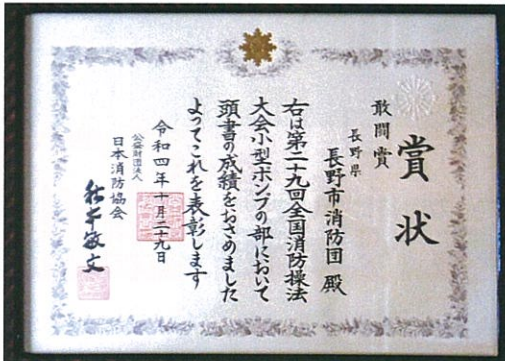 賞状
敢闘賞
長野県
長野市消防団 殿
右は第二十九回全国消防操法
大会小型ポンプの部において
頭書の成績をおさめました
よってこれを表彰します
令和四年十月二十九日
公益財団法人
日本消防協会
秋本敏文